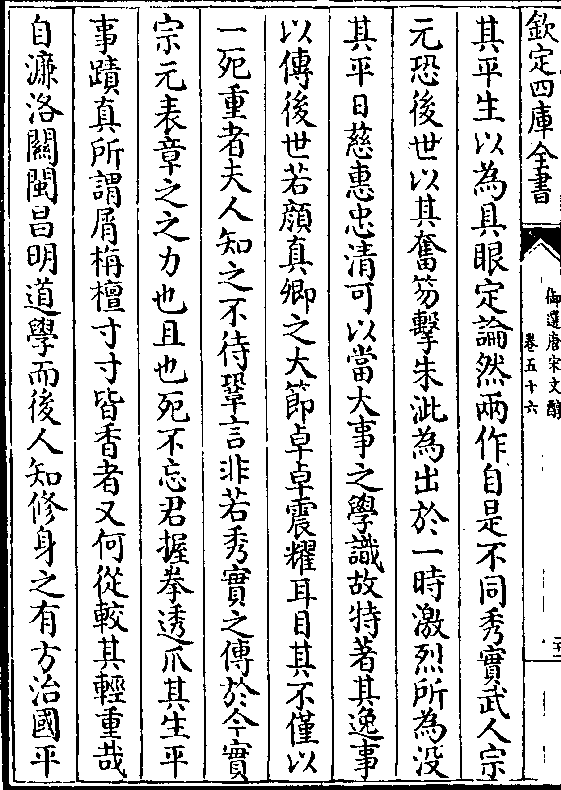 欽定四庫全書
御選唐宋文醇
卷五十六
其平生以為具眼定論然兩作自是不同秀實武人宗
元恐後世以其奮笏擊朱泚為出於一時激烈所為没
其平日慈惠忠清可以當大事之學識故特著其逸事
以傳後世若顔真卿之大節卓卓震耀耳目其不僅以
一死重者夫人知之不待鞏言非若秀實之傳於今實
宗元表章之之力也且也死不忘君握拳透爪其生平
事蹟真所謂屑栴檀寸寸皆香者又何從較其輕重哉
自濂洛關閩昌明道學而後人知修身之有方治國平